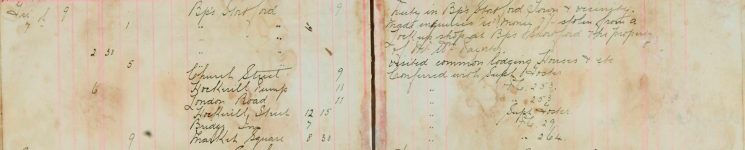 9 Bps Stortford 9
1 " "
" "
2 30 " "
5
Church Street 9
6 Hockerill Pump 11
London Road 11
Hockerill Street 12 15
7
9 Market Square 8 30
Duty in Bps Stortford Town & vicinity
Made inquiries re money stolen from a
lock up shop at Bps Stortford the property
of
Visited common lodging Houses & etc
Conferred with Supt Foster
" P.C. 253
"
" Supt Foster
" P.C. 29
" " 264